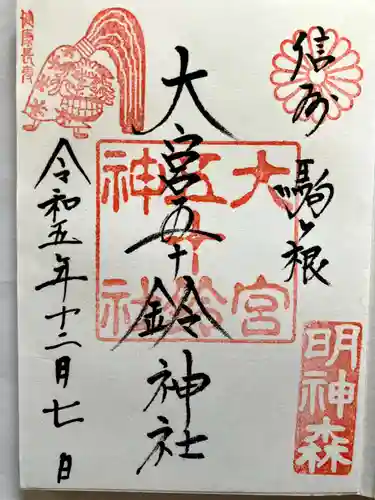 信州
駒ヶ根
明神森
大宮五十鈴神社
大宮
五十鈴
神社
令和五年十二月七日
健康長寿